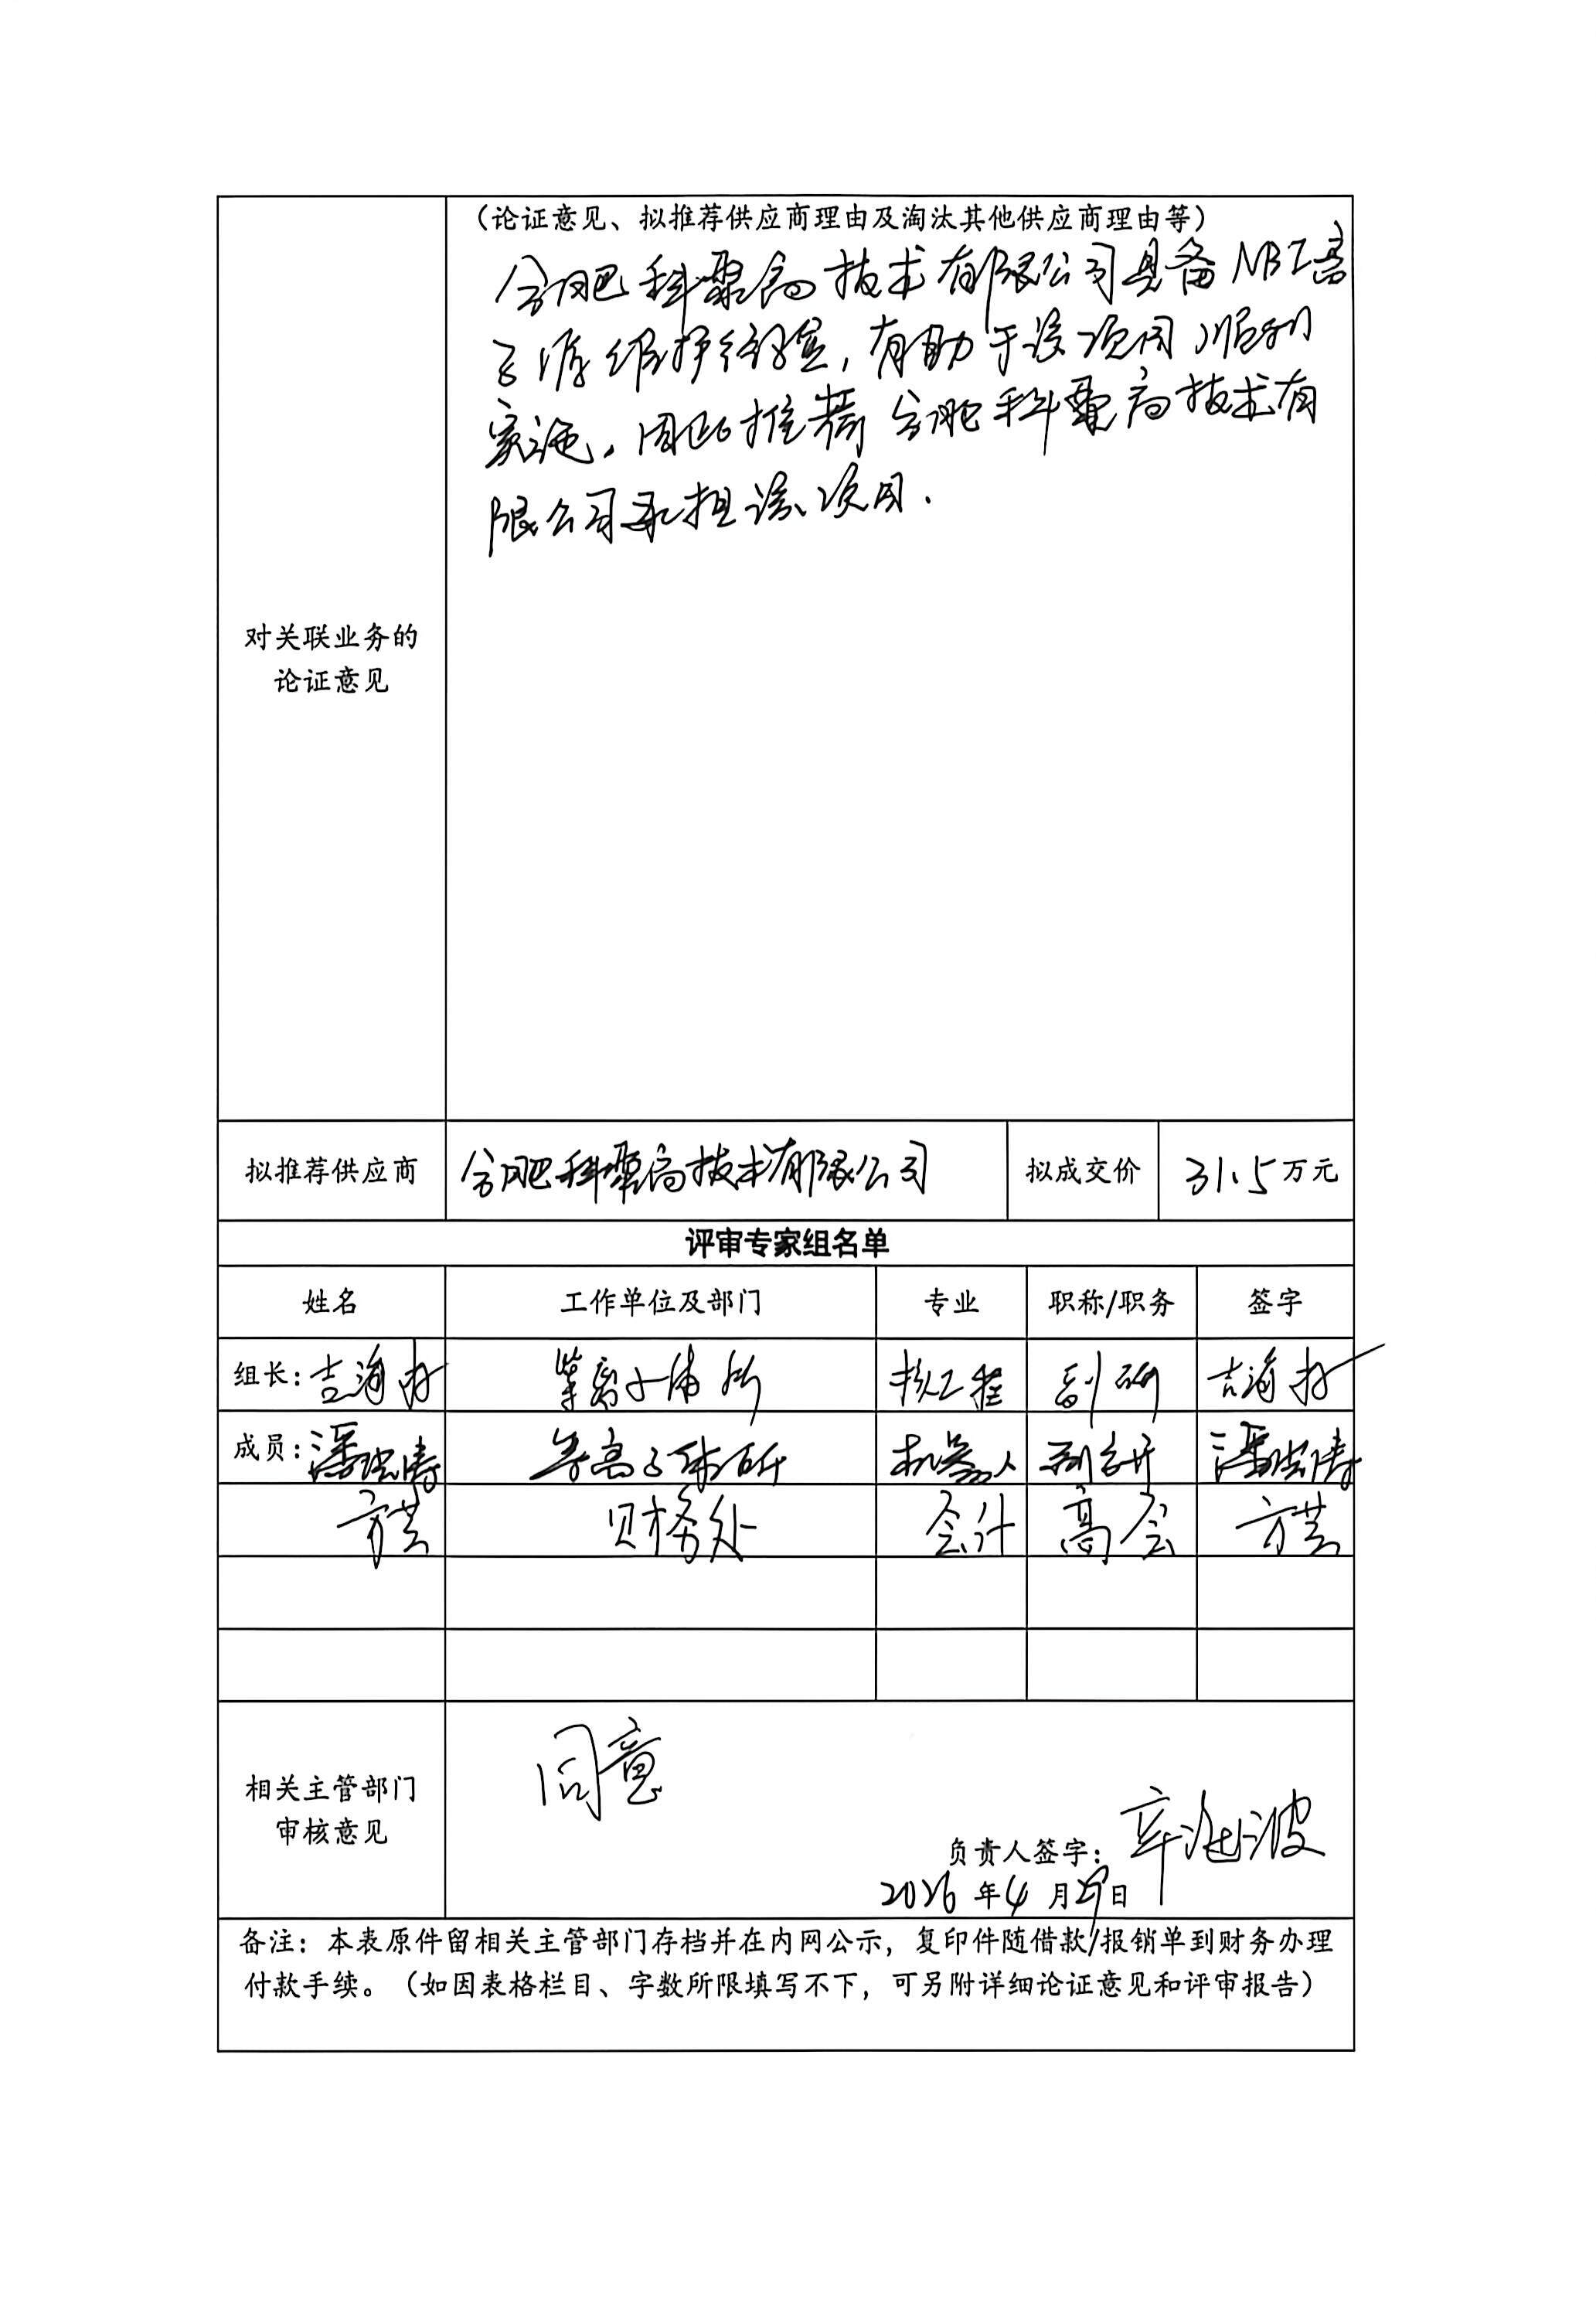 （论证意见、拟推荐供应商理由及淘汰其他供应商理由等）
合肥科聚高技术有限公司具备NBI离
子源维护经验，有助于该项目顺利
实施，因此推荐合肥科聚高技术有
限公司承担该项目.
对关联业务的
论证意见
拟推荐供应商 合肥科聚高技术有限公司 拟成交价 31.5万元
评审专家组名单
姓名 工作单位及部门 专业 职称/职务 签字
组长：吉海 等离子体所 核工程 副研 吉海
成员：潘洪涛 等离子体所 机器人 副研 潘洪涛
方芸 财务处 会计 高会 方芸
同意
相关主管部门
审核意见
负责人签字：
2026年4月29日
备注：本表原件留相关主管部门存档并在内网公示，复印件随借款/报销单到财务办理
付款手续。（如因表格栏目、字数所限填写不下，可另附详细论证意见和评审报告）